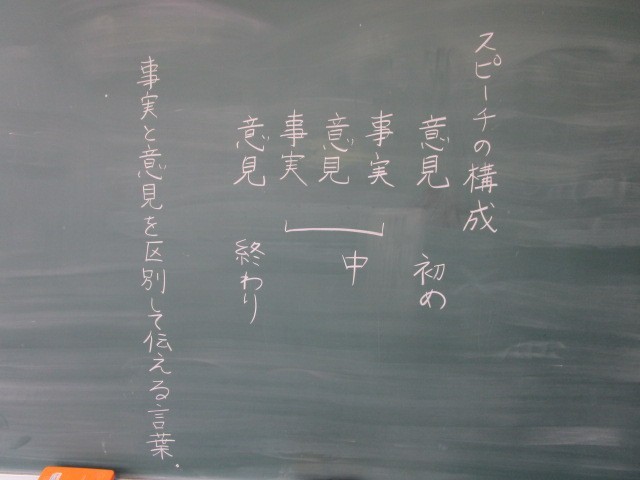 スピーチの構成
意見 初め
事実
意見 中
事実
意見 終わり
事実と意見を区別して伝える言葉.